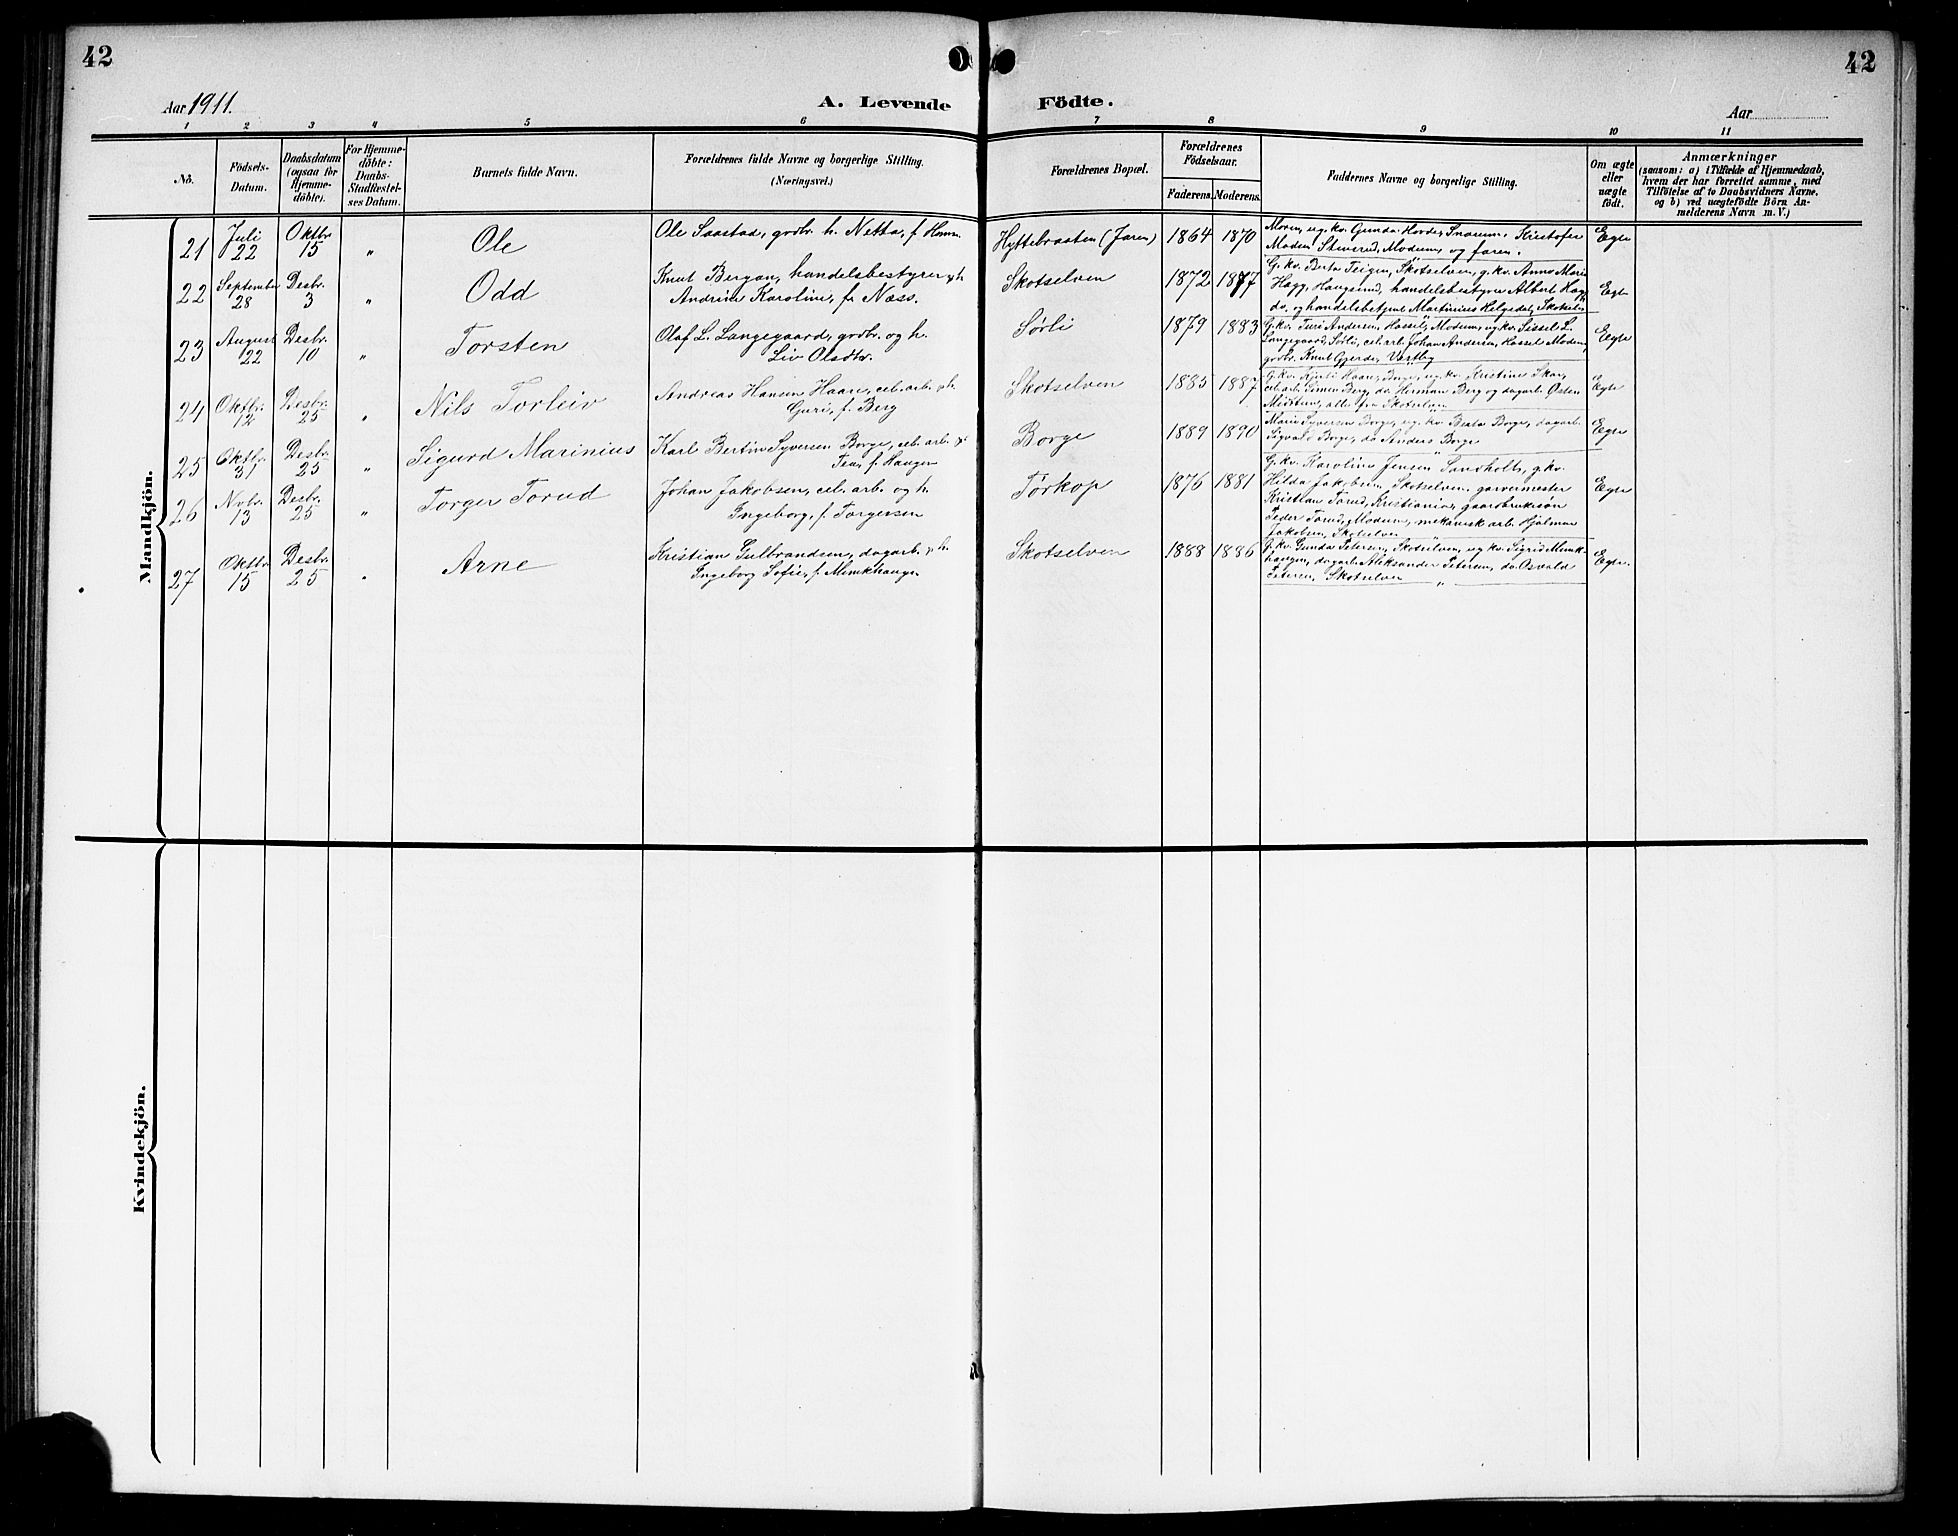 42
42
Aar 1911.
A. Levende Födte.
Aar
1 2 3 4 5 6 7 8 9 10 11
No.
Födsels-
Datum.
Daabsdatum
(ogsaa for
Hjemme-
döbte).
For Hjemme-
döbte:
Daabs-
Stadfæstel-
ses Datum.
Barnets fulde Navn.
Forældrenes fulde Navne og borgerlige Stilling.
(Næringsvei.)
Forældrenes Bopæl.
Forældrenes
Födselsaar.
Faderens.
Moderens.
Faddernes Navne og borgerlige Stilling.
Om ægte
eller
uægte
födt.
Anmærkninger
(saasom: a) i Tilfælde af Hjemmedaab,
hvem der har forrettet samme, med
Tilföielse af to Daabsvidners Navne,
og b) ved uægtefödte Börn An-
melderens Navn m. V.)
Mandkjön.
21 Juli 22 Oktbr. 15 " Ole
Ole Saastad, gdbr. h. Netta, f.
Hyttebraaten (Jaren) 1864 1870
Moren, ug. kv. Gunda Hovde, Snarum, Kristofer
Moden Stiverud, Modum, og faren.
Egte
22 September 28 Desbr. 3 " Odd
Knut Bergan, handelsbestyrer & h.
Andrine Karoline, f. Næss.
Skotselven 1872 1877
G. kv. Berta Teigen, Skotselven, g. kv. Anna Marie
Hagg, Haugsund, handelsbestyrer Albert Hagg
do, og handelsbetjent Martinius Helgedal, Skotselv.
Egte
23 August 22 Desbr. 10 " Torsten
Olaf L. Langegaard, gdbr. og h.
Liv Olsdtr.
Sørli 1879 1883
G. kv. Turi Andersen, Hassel, Modum, ug. kv. Sissel L.
Langegaard, Sørli, cel. arb. Johan Andersen, Hassel Modum,
gdbr. Knut Gjerde, Vestby
Egte
24 Oktbr. 12 Desbr. 25 " Nils Torleiv
Andreas Hansen Haare, cel. arb. & h.
Guri, f. Berg
Skotselven 1885 1887
G. kv. Kjersti Haare, Borge, ug. kv. Kristine Skar,
cel. arb. Simen Berg, do. Herman Berg og dagarb. Østen
alle fra Skotselven
Egte
25 Oktbr. 31 Desbr. 25 " Sigurd Marinius
Karl Bertin Syversen Borge, cel. arb. &
Tea, f. Haugen
Borge 1889 1890
Marie Syversen Borge, ug. kv. Berta Borge, dagarb.
Sigvald Borge, do Anders Borge
Egte
26 Nvbr. 13 Desbr. 25 " Torger Torud
Johan Jakobsen, cel. arb. og h.
Ingeborg, f. Torgersen
Tørkop 1876 1881
G. kv. Karoline Jensen Sandholt, g. kv.
Hilda Jakobsen Skotselven, garvermester
Kristian Torud, Kristiania, gaardbruksøn
Peder Torud, Modum, mekanisk arb. Hjalmar
Jakobsen, Skotselven
Egte
27 Oktbr. 15 Desbr. 25 " Arne
Kristian Gulbrandsen, dagarb. & h.
Ingeborg Sofie, f. Munkhaugen
Skotselven 1888 1886
G. kv. Gunda Petersen, Skotselven, ug. kv. Sigrid Munk-
haugen, dagarb. Aleksander Petersen, do. Osvald
Petersen, Skotselven
Egte.
Kvindekjön.